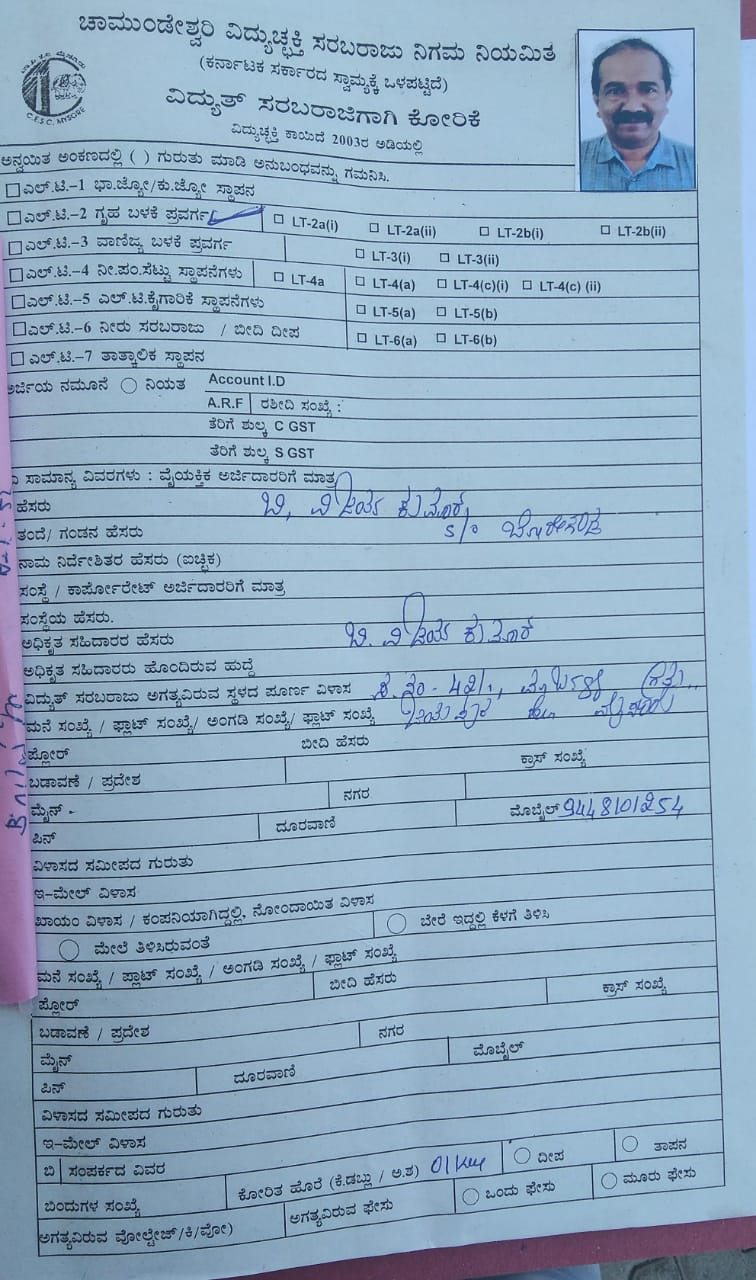 ಚಾಮುಂಡೇಶ್ವರಿ ವಿದ್ಯುಚ್ಛಕ್ತಿ ಸರಬರಾಜು ನಿಗಮ ನಿಯಮಿತ
(ಕರ್ನಾಟಕ ಸರ್ಕಾರದ ಸ್ವಾಮ್ಯಕ್ಕೆ ಒಳಪಟ್ಟಿದೆ)
C.E.S.C. MYSORE
ವಿದ್ಯುತ್ ಸರಬರಾಜಿಗಾಗಿ ಕೋರಿಕೆ
ವಿದ್ಯುಚ್ಛಕ್ತಿ ಕಾಯಿದೆ 2003ರ ಅಡಿಯಲ್ಲಿ
ಅನ್ವಯಿತ ಅಂಕಣದಲ್ಲಿ ( ) ಗುರುತು ಮಾಡಿ ಅನುಬಂಧವನ್ನು ಗಮನಿಸಿ.
ಎಲ್.ಟಿ.-1 ಭಾ.ಜ್ಯೋ/ಕು.ಜ್ಯೋ ಸ್ಥಾಪನ
ಎಲ್.ಟಿ.-2 ಗೃಹ ಬಳಕೆ ಪ್ರವರ್ಗ LT-2a(i) LT-2a(ii) LT-2b(i) LT-2b(ii)
ಎಲ್.ಟಿ.-3 ವಾಣಿಜ್ಯ ಬಳಕೆ ಪ್ರವರ್ಗ LT-3(i) LT-3(ii)
ಎಲ್.ಟಿ.-4 ನೀ.ಪಂ.ಸೆಟ್ಟು ಸ್ಥಾಪನೆಗಳು LT-4a LT-4(a) LT-4(c)(i) LT-4(c) (ii)
ಎಲ್.ಟಿ.-5 ಎಲ್.ಟಿ.ಕೈಗಾರಿಕೆ ಸ್ಥಾಪನೆಗಳು LT-5(a) LT-5(b)
ಎಲ್.ಟಿ.-6 ನೀರು ಸರಬರಾಜು / ಬೀದಿ ದೀಪ LT-6(a) LT-6(b)
ಎಲ್.ಟಿ.-7 ತಾತ್ಕಾಲಿಕ ಸ್ಥಾಪನ
ಅರ್ಜಿಯ ನಮೂನೆ ನಿಯತ Account I.D
A.R.F ರಶೀದಿ ಸಂಖ್ಯೆ :
ತೆರಿಗೆ ಶುಲ್ಕ C GST
ತೆರಿಗೆ ಶುಲ್ಕ S GST
ಸಾಮಾನ್ಯ ವಿವರಗಳು : ವೈಯಕ್ತಿಕ ಅರ್ಜಿದಾರರಿಗೆ ಮಾತ್ರ
ಹೆಸರು ಬಿ. ವಿಜಯ ಕುಮಾರ್
ತಂದೆ/ ಗಂಡನ ಹೆಸರು S/o ಬೋರೇಗೌಡ
ನಾಮ ನಿರ್ದೇಶಿತರ ಹೆಸರು (ಐಚ್ಛಿಕ)
ಸಂಸ್ಥೆ / ಕಾರ್ಪೋರೇಟ್ ಅರ್ಜಿದಾರರಿಗೆ ಮಾತ್ರ
ಸಂಸ್ಥೆಯ ಹೆಸರು.
ಅಧಿಕೃತ ಸಹಿದಾರರ ಹೆಸರು ಬಿ. ವಿಜಯ ಕುಮಾರ್
ಅಧಿಕೃತ ಸಹಿದಾರರು ಹೊಂದಿರುವ ಹುದ್ದೆ
ವಿದ್ಯುತ್ ಸರಬರಾಜು ಅಗತ್ಯವಿರುವ ಸ್ಥಳದ ಪೂರ್ಣ ವಿಳಾಸ ಸ.ನಂ - 42/1, ಗ್ರಾಮ
ಮನೆ ಸಂಖ್ಯೆ / ಫ್ಲಾಟ್ ಸಂಖ್ಯೆ/ ಅಂಗಡಿ ಸಂಖ್ಯೆ/ ಫ್ಲಾಟ್ ಸಂಖ್ಯೆ ಜಯಪುರ ಹೋ
ಫ್ಲೋರ್ ಬೀದಿ ಹೆಸರು
ಬಡಾವಣೆ / ಪ್ರದೇಶ ಕ್ರಾಸ್ ಸಂಖ್ಯೆ
ಮೈನ್ - ನಗರ
ಪಿನ್ ದೂರವಾಣಿ ಮೊಬೈಲ್ 9448101254
ವಿಳಾಸದ ಸಮೀಪದ ಗುರುತು
ಇ-ಮೇಲ್ ವಿಳಾಸ
ಖಾಯಂ ವಿಳಾಸ / ಕಂಪನಿಯಾಗಿದ್ದಲ್ಲಿ, ನೋಂದಾಯಿತ ವಿಳಾಸ
ಮೇಲೆ ತಿಳಿಸಿರುವಂತೆ ಬೇರೆ ಇದ್ದಲ್ಲಿ ಕೆಳಗೆ ತಿಳಿಸಿ
ಮನೆ ಸಂಖ್ಯೆ / ಪ್ಲಾಟ್ ಸಂಖ್ಯೆ / ಅಂಗಡಿ ಸಂಖ್ಯೆ / ಫ್ಲಾಟ್ ಸಂಖ್ಯೆ
ಫ್ಲೋರ್ ಬೀದಿ ಹೆಸರು
ಬಡಾವಣೆ / ಪ್ರದೇಶ ಕ್ರಾಸ್ ಸಂಖ್ಯೆ
ಮೈನ್ ನಗರ
ಪಿನ್ ದೂರವಾಣಿ ಮೊಬೈಲ್
ವಿಳಾಸದ ಸಮೀಪದ ಗುರುತು
ಇ-ಮೇಲ್ ವಿಳಾಸ
ಬಿ ಸಂಪರ್ಕದ ವಿವರ
ಬಿಂದುಗಳ ಸಂಖ್ಯೆ ಕೋರಿತ ಹೊರೆ (ಕೆ.ಡಬ್ಲು / ಅ.ಶ) 01 KW ದೀಪ ತಾಪನ
ಅಗತ್ಯವಿರುವ ವೋಲ್ಟೇಜ್/ಕಿ/ವೋ) ಅಗತ್ಯವಿರುವ ಫೇಸು ಒಂದು ಫೇಸು ಮೂರು ಫೇಸು